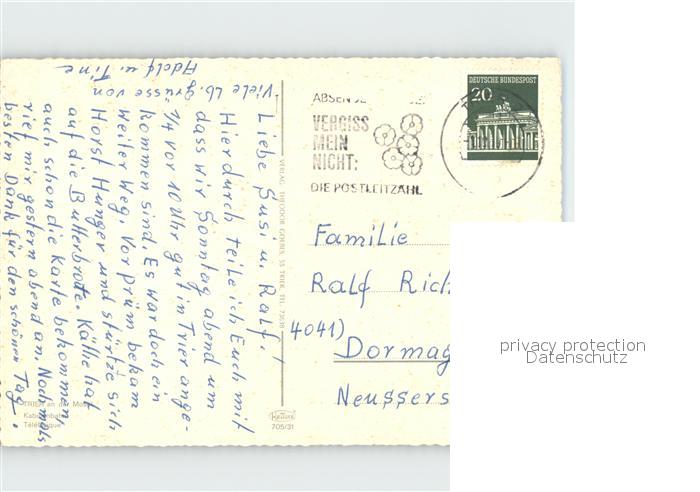 Liebe Susi u. Ralf,
Hierdurch teile ich Euch mit
dass wir Sonntag abend um
1/4 vor 10 Uhr gut in Trier ange-
kommen sind. Es war doch ein
weiter Weg. Vor Prüm bekam
Horst Hunger und stürtze sich
auf die Butterbrote. Källe hat
auch schon die Karte bekommen
rief mir gestern abend an. Nochmals
besten Dank für den schönen Tag.
Viele lb. Grüsse von
Adolf u. Tine
VERLAG THEODOR GOERES, 55 TRIER, TEL.
TRIER an der
DEUTSCHE BUNDESPOST
20
VERGISS
MEIN
NICHT:
DIE POSTLEITZAHL
Familie
Ralf Rich
4041)
Dormag
Neussers
Krüger
705/31
privacy protection
Datenschutz